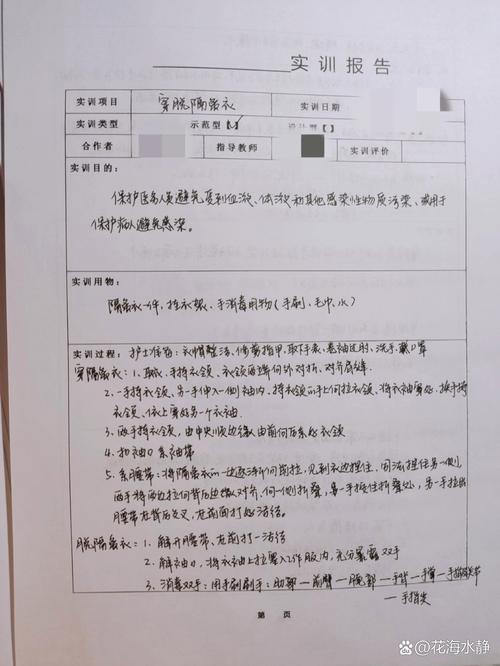 实训报告
实训项目 穿脱隔离衣 实训日期
实训类型 示范型【√】 设计型【】
合作者 指导教师 实训评价
实训目的:
保护医务人员避免受到血液、体液和其他感染性物质污染、或用于
保护病人避免感染。
实训用物:
隔离衣一件、挂衣架、手消毒用物(手刷、毛巾、水)
实训过程: 护士准备:衣帽整洁、修剪指甲、取下手表、卷袖过肘、洗手、戴口罩
穿隔离衣:1、取衣、手持衣领、衣领两端向外对折、对齐肩缝
2、一手持衣领、另一手伸入一侧袖内、持衣领的手向上拉衣领、将衣袖穿好、换手持
衣领、依上穿好另一个衣袖
3、两手持衣领,由中央顺边缘由前向后系好衣领
4、扣袖口系袖带
5、系腰带:将隔离衣的一边逐渐向前拉,见到衣边捏住,同法捏住另一侧,
两手将两边拉向背后边缘对齐、向一侧折叠、另一手按住折叠处,另一手拉出
腰带在背后交叉,在前面打好活结。
脱隔离衣:1、解开腰带、在前打一活结
2、解袖口,将衣袖上拉塞入工作服内,充分暴露双手
3、消毒双手:用手刷刷手:肘部—前臂—腕部—手背—手掌—手指
—手指尖
第 页
@花海水静